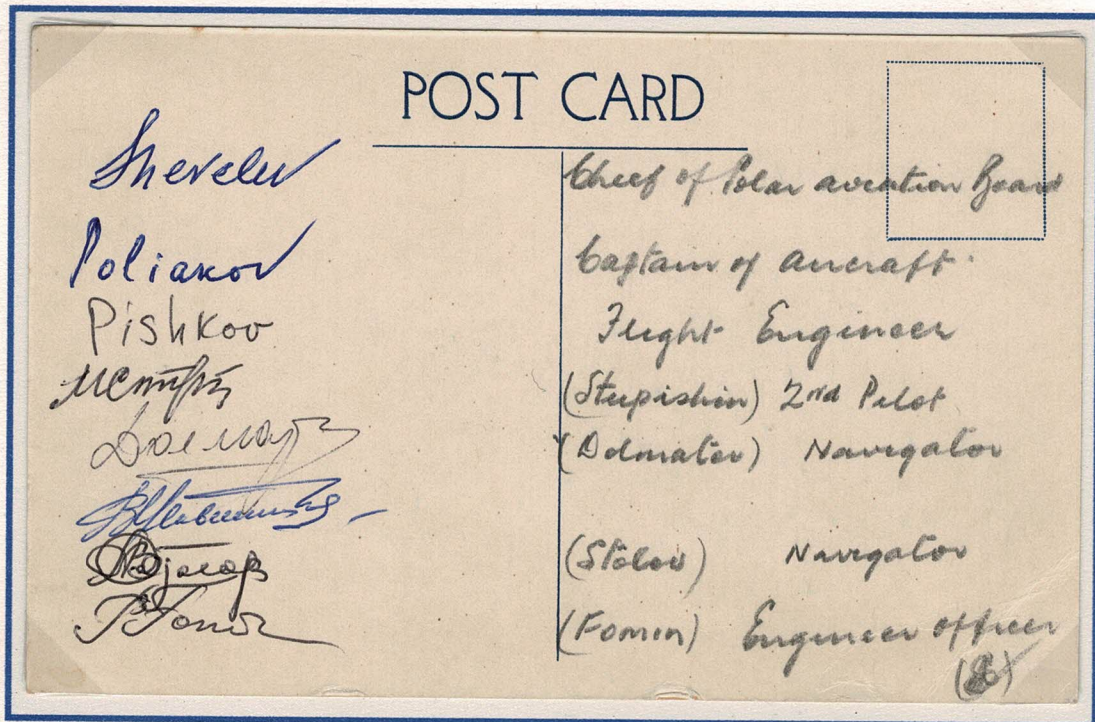 POST CARD
Shevelev Chief of Polar aviation Board
Poliakov Captain of Aircraft.
Pishkov Flight Engineer
(Stupishin) 2nd Pilot
(Dolmatov) Navigator
(Stolov) Navigator
(Fomin) Engineer officer